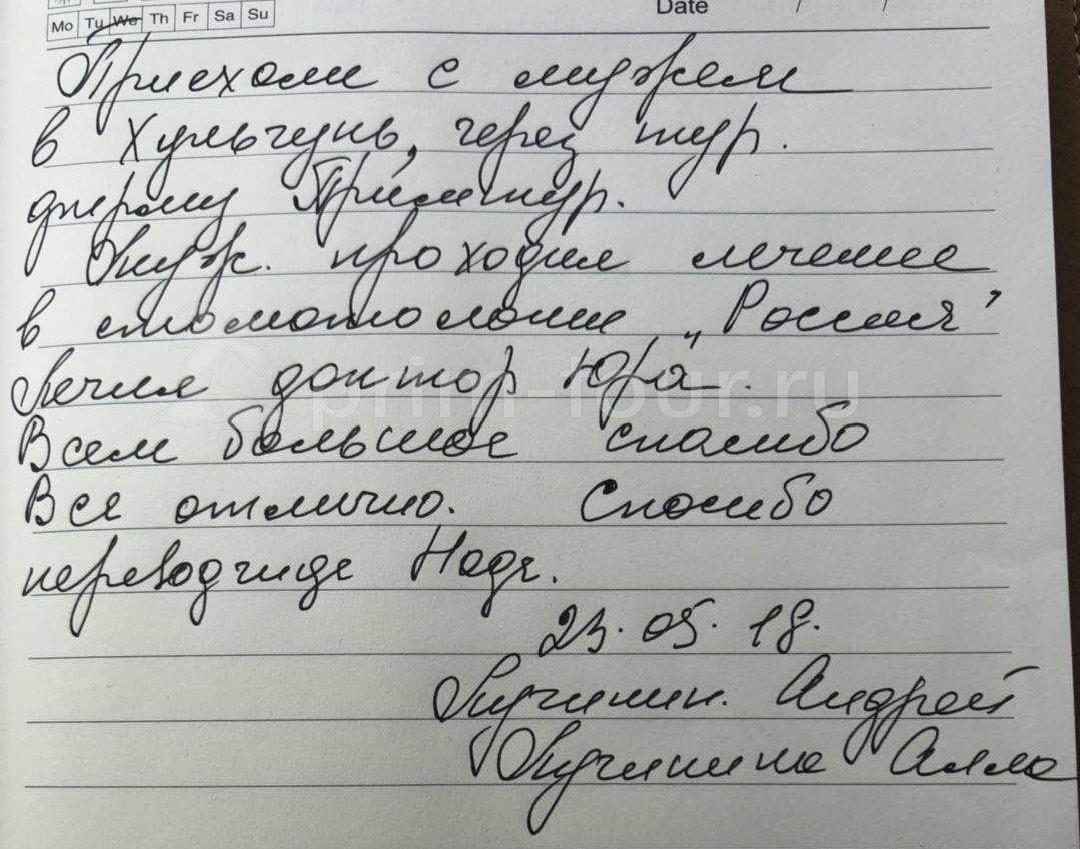 Mo Tu We Th Fr Sa Su Date / /
Приехали с мужем
в Хульчунь, через тур.
фирму Примтур.
Муж. проходил лечение
в стоматологии „Россия"
Лечил доктор Юра.
prim-tour.ru
Всем большое спасибо
Все отлично. Спасибо
переводчице Наде.
23.05.18.
Андрей
Алла